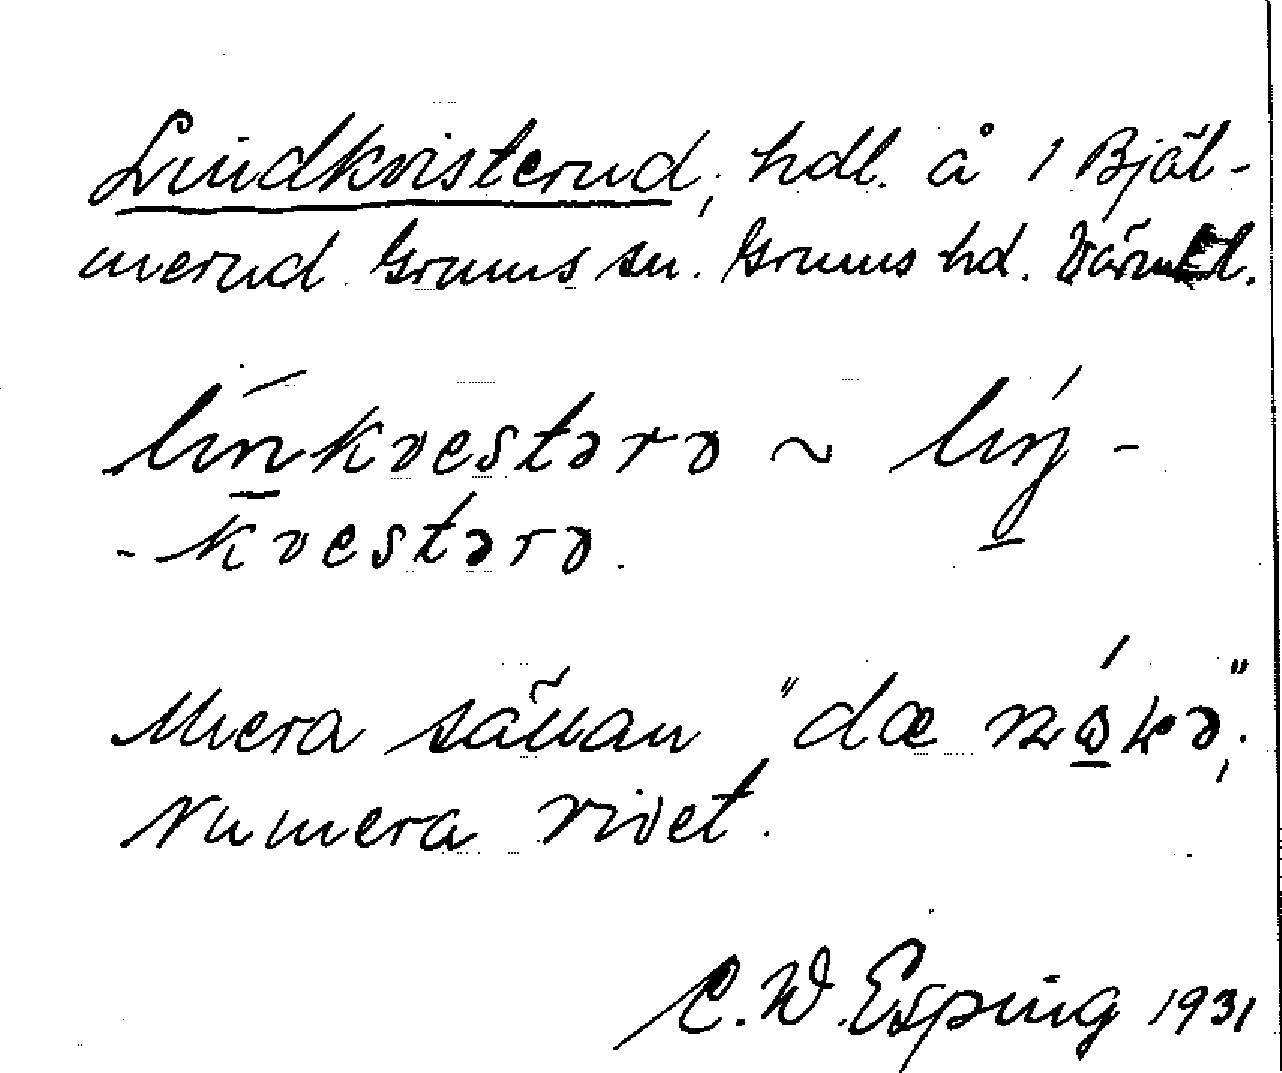 Lindkvisterud, hdl. å 1 Bjäl-
merud Grums sn. Grums hd. Värmld.
línkvestərə ~ líŋ-
-kvestərə.
Mera sällan "dæ nə́kə";
Numera rivet.
C. W. Esping 1931